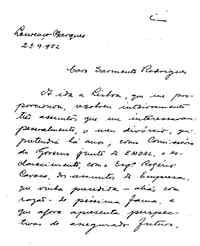 Lourenço Marques
23.9.952
Caro Sarmento Rodrigues
A ida a Lisboa, que me pro-
porcionou, resolveu inteiramente
três assuntos que me interessavam
pessoalmente, o meu divórcio, que
pretendia há anos, com Comissário
do Governo junto da ENDEL, o es-
clarecimento, com o Engº Rogério
Cavaco, dos assuntos da Empresa,
que vinha precedida – aliás com
razão – de péssima fama, e
que agora apresenta perspec-
tivas de assegurado futuro.